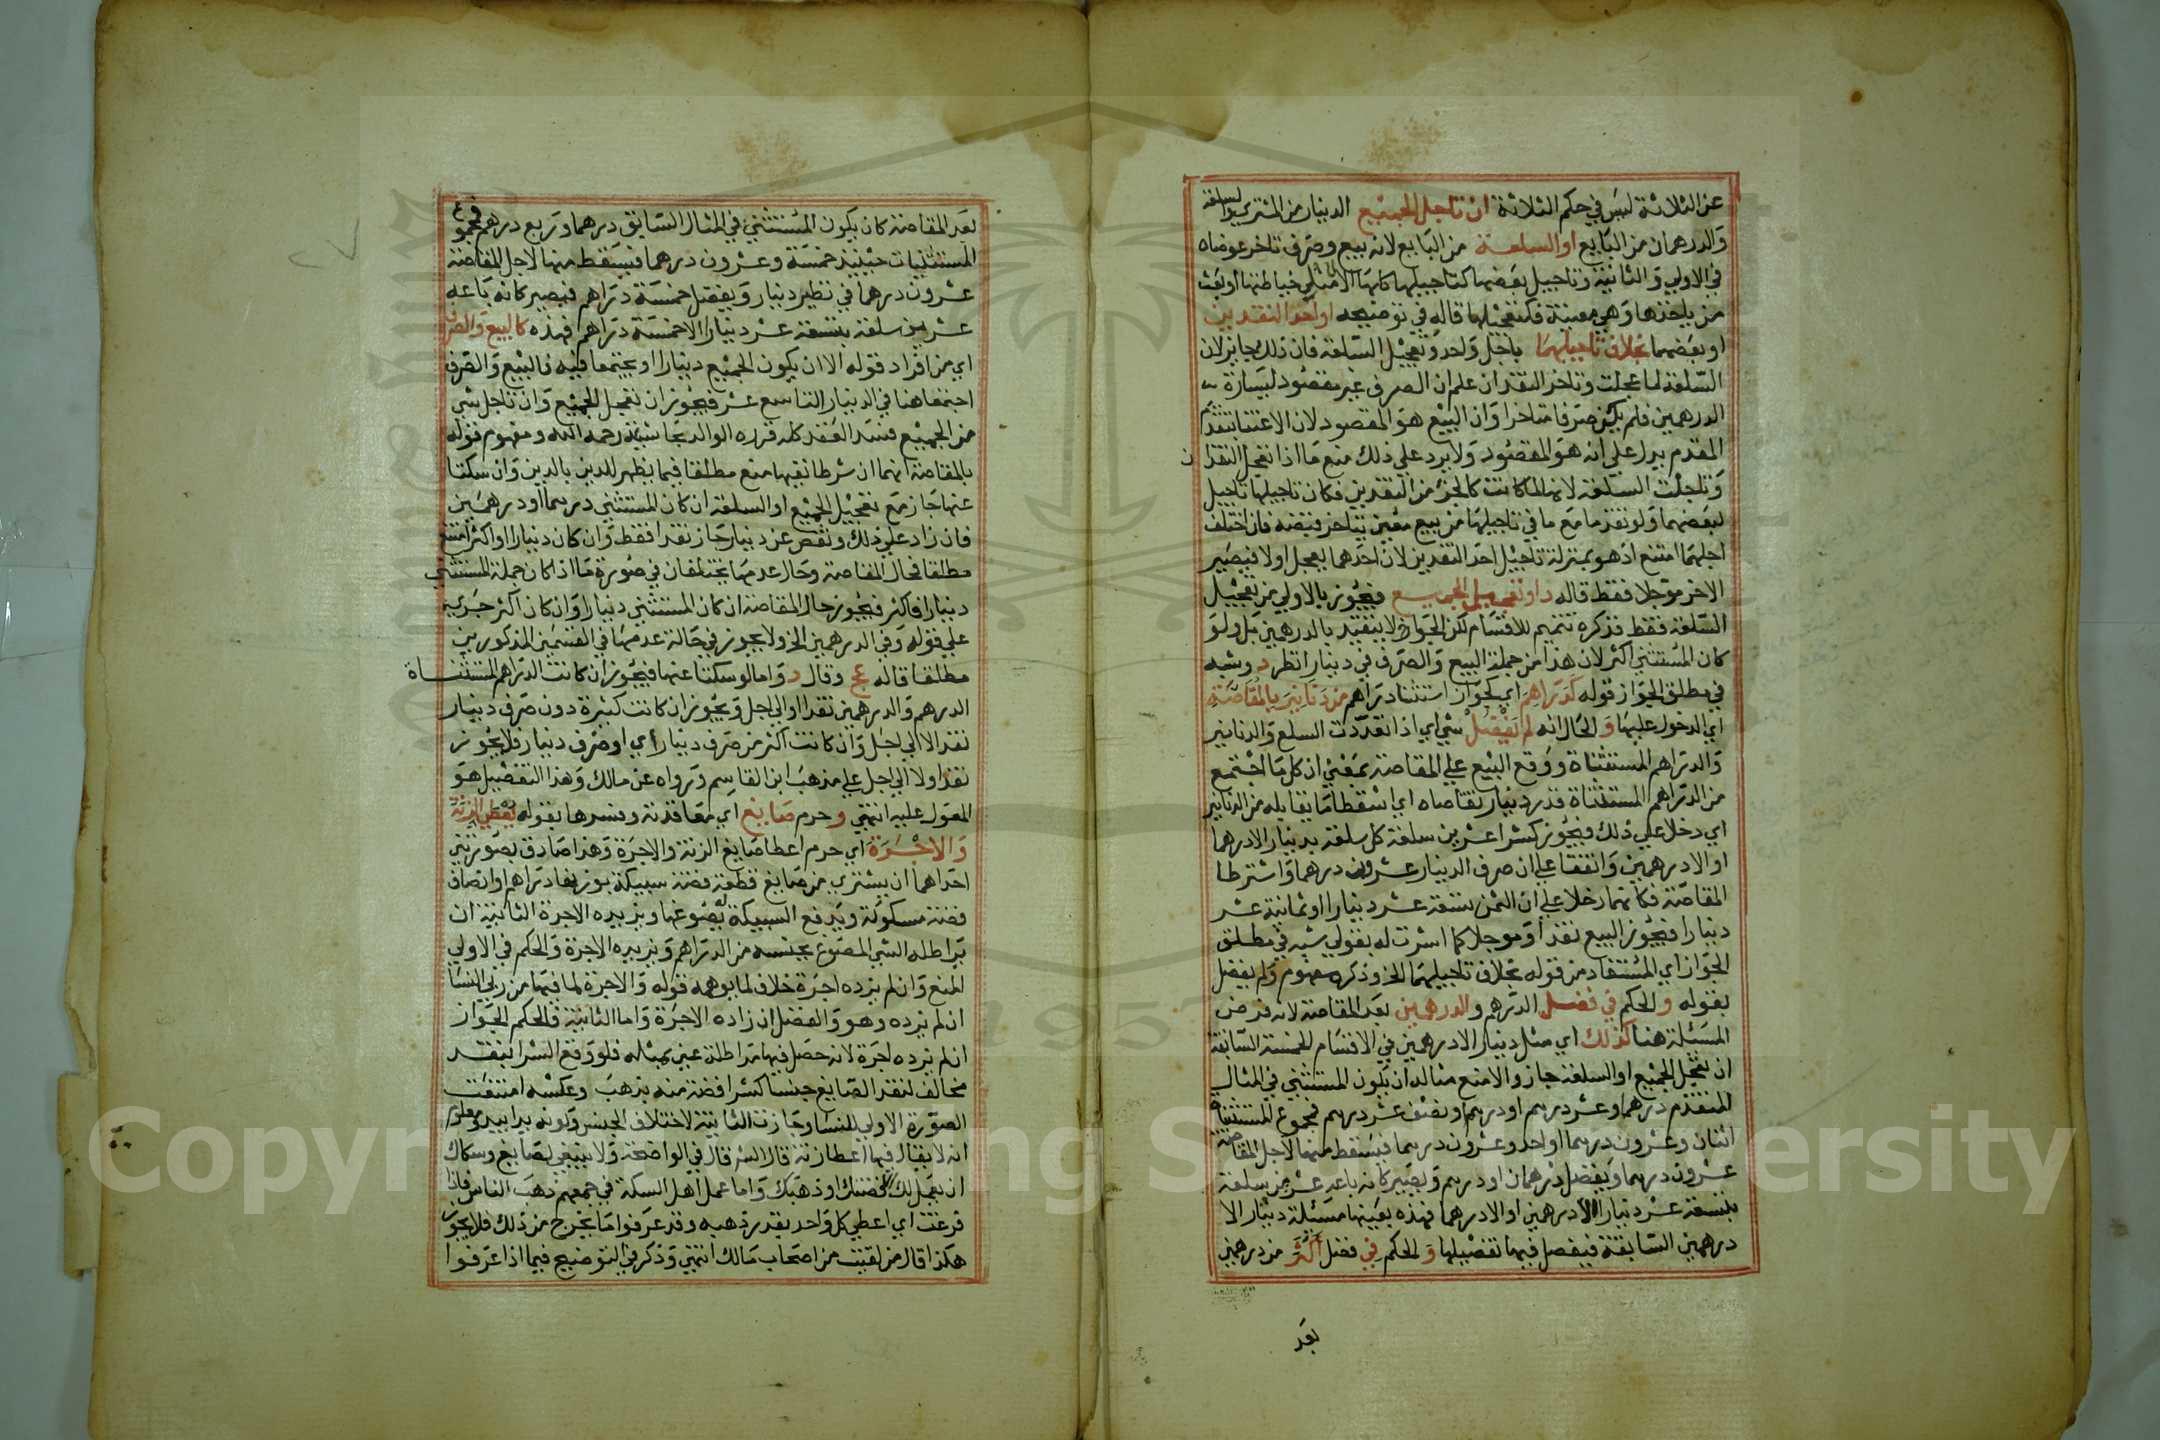 عن الثلاثة ليس في حكم الثلاثة ان تاجل الجميع الدينار من المشتري والسلعة
والدرهمان من البايع او السلعة من البايع لانه بيع وصرف تاخر عوضاه
في الاولي والثانية وتاجيل بعضها كتاجيلها كلها الا مثل خياطتها او بعث
من ياخذها وهي معينة فكتعجيلها قاله في توضيحه او احد النقدين
او بعضهما بخلاف تاجيلهما باجل واحد وتعجيل السلعة فان ذلك جايز لان
السلعة لما عجلت وتاخر النقد ان علم ان الصرف غير مقصود ليسارة
الدرهمين فلم يكن صرفا متاخرا وان البيع هو المقصود لان الاعتنا بتقدم
المقدم يدل علي انه هو المقصود ولا يرد علي ذلك منع ما اذا تعجل النقدان
وتاجلت السلعة لانها لما كانت كالجزء من النقدين فكان تاجيلها تاجيل
لبعضهما ولو نقدما مع ما في تاجيلها من بيع معين يتاخر قبضه فان اختلف
اجلهما امتنع اذ هو بمنزلة تاجيل احد النقدين لان احدهما يعجل اولا فيصير
الاخر موجلا فقط قاله د او تعجيل الجميع فيجوز بالاولي من تعجيل
السلعة فقط فذكره تتميم للاقسام لكن الجواز لا يتقيد بالدرهمين بل ولو
كان المستثني اكثر لان هذا من جملة البيع والصرف في دينار انظر د وشبه
في مطلق الجواز قوله كدراهم اي كجواز استثنا دراهم من دنانير بالمقاصة
اي الدخول عليها و الحال انه لم يفضل شي اي اذا تعددت السلع والدنانير
والدراهم المستثناة ووقع البيع علي المقاصة بمعني ان كل ما اجتمع
من الدراهم المستثناة قدر دينار تقاصاه اي اسقطا ما يقابله من الدنانير
اي دخلا علي ذلك فيجوز كشرا عشرين سلعة كل سلعة بدينار الا درهما
او الا درهمين واتفقا علي ان صرف الدينار عشرون درهما واشترطا
المقاصة فكانهما دخلا علي ان الثمن تسعة عشر دينارا او ثمانية عشر
دينارا فيجوز البيع نقدا وموجلا كما اشرت له بقولي شبه في مطلق
الجواز اي المستفاد من قوله بخلاف تاجيلهما الخ وذكر مفهوم ولم يفضل
بقوله و الحكم في فضل الدرهم و الدرهمين بعد المقاصة لانه فرض
المسئلة هنا كذلك اي مثل دينار الا درهمين في الاقسام الخمسة السابقة
ان تعجل الجميع او السلعة جاز والا منع مثاله ان يكون المستثني في المثال
المتقدم درهما وعشر درهم او درهم ونصف عشر درهم فمجموع المستثناة
اثنان وعشرون درهما او احد وعشرون درهما فيسقط منها لاجل المقاصة
عشرون درهما ويفضل درهمان او درهم ويصير كانه باعه عشرين سلعة
بتسعة عشر دينارا الا درهمين او الا درهما فهذه بعينها مسئلة دينار الا
درهمين السابقة فيفصل فيها تفصيلها و الحكم في فضل اكثر من درهمين
بعد
بعد المقاصة كان يكون المستثني في المثال السابق درهما وربع درهم فمجموع
المستثنيات حينيذ خمسة وعشرون درهما فيسقط منها لاجل المقاصة
عشرون درهما في نظير دينار ويفضل خمسة دراهم فيصير كانه باعه
عشرين سلعة بتسعة عشر دينارا الا خمسة دراهم فهذه كالبيع والصرف
اي من افراد قوله الا ان يكون الجميع دينارا او يجتمعا فيه فالبيع والصرف
اجتمعا هنا في الدينار التاسع عشر فيجوز ان تعجل الجميع وان تاجل شي
من الجميع فسد العقد كله قرره الوالد بحاشيته رحمه الله ومفهوم قوله
بالمقاصة انهما ان شرطا نفيها منع مطلقا فيما يظهر للدين بالدين وان سكتا
عنها جاز مع تعجيل الجميع او السلعة ان كان المستثني درهما او درهمين
فان زاد علي ذلك ونقص عن دينار جاز نقدا فقط وان كان دينارا او اكثر امتنع
مطلقا فحال المقاصة وحال عدمها يختلفان في صورة ما اذا كان جملة المستثني
دينارا فاكثر فيجوز حال المقاصة ان كان المستثني دينارا وان كان اكثر جري
علي قوله وفي الدرهمين الخ ولا يجوز في حالة عدمها في القسمين المذكورين
مطلقا قاله عج وقال د واما لو سكتا عنها فيجوز ان كانت الدراهم المستثناة
الدرهم والدرهمين نقدا او الي اجل ويجوز ان كانت كثيرة دون صرف دينار
نقدا لا الي اجل وان كانت اكثر من صرف دينار اي او صرف دينار فلا يجوز
نقدا ولا الي اجل علي مذهب ابن القاسم ورواه عن مالك وهذا التفصيل هو
المعول عليه انتهي و حرم صايغ اي معاقدته وفسرها بقوله يعطي الزنة
والاجرة اي حرم اعطا صايغ الزنة والاجرة وهذا صادق بصورتين
احداهما ان يشتري من صايغ قطعة فضة سبيكة بوزنها دراهم او انصاف
فضة مسكوكة ويدفع السبيكة يصوغها ويزيده الاجرة الثانية ان
يراطله الشي المصوغ بجنسه من الدراهم ويزيده الاجرة والحكم في الاولي
المنع وان لم يزده اجرة خلاف لما يوهمه قوله والاجرة لما فيها من ربي النسا
ان لم يزده وهو والفضل ان زاده الاجرة واما الثانية فالحكم الجواز
ان لم يزده اجرة لانه حصل فيها مراطلة عين بمثله فلو وقع الشرا بنقد
مخالف لنقد الصايغ جنسا كشرا فضة منه بذهب وعكسه امتنعت
الصورة الاولي للنسا وجازت الثانية لاختلاف الجنس ولونه يدا بيد ومعلوم
انه لا يقال فيها اعطا زنة قال الشر قال في الواضحة ولا ينبغي لصايغ وسكاك
ان يعمل لك فضتك او ذهبك واما عمل اهل السكة في جمعهم ذهب الناس فاذا
فرغت اي اعطي كل واحد بقدر ذهبه وقد عرفوا ما يخرج من ذلك فلا يجوز
هكذا قال من لقيت من اصحاب مالك انتهي وذكر في التوضيح فيما اذا عرفوا